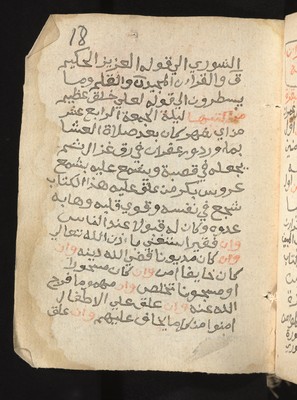 18
الشورى الي قوله العزيز الحكيم
ق والقران المجيد ن والقلم وما
يسطرون الي قوله لعلي خلق عظيم
من كتبها ليلة الجمعة الرابع عشر
من اي شهر كان بعد صلاة العشا
بما ورد وزعفران في رق غزال ثم
يجعله في قصبة ويشمع عليه بشمع
عروس بكر من علق عليه هذا الكتاب
شجع في نفسه وقوي قلبه وهابه
عدوه وكان له قبولا عند الناس
وان فقيرا استغني باذن الله تعالي
وان كان مديونا قضي الله دينه وان
كان خايفا امن وان كان مسحورا
او مسجونا تخلص وان مهموما فرج
الله عنه وان علق علي الاطفال
امنوا من ما يخاف عليهم وان علق